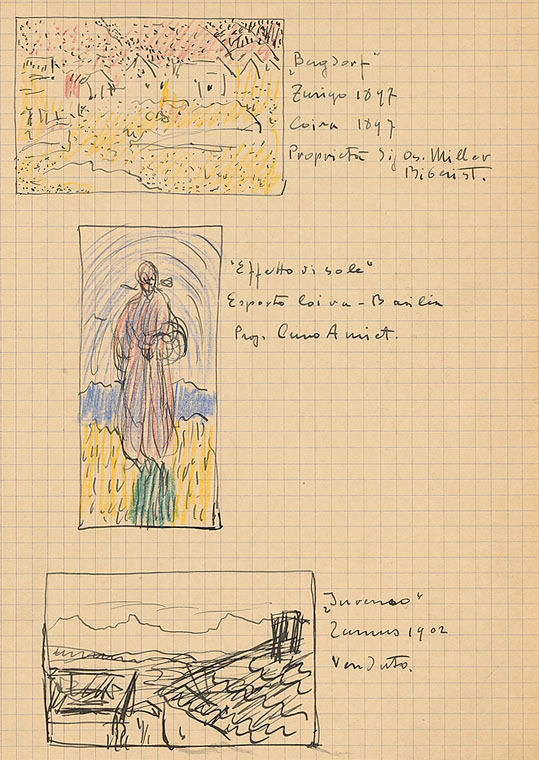 „Bergdorf"
Zurigo 1897
Coira 1897
Proprietà Sig Os. Miller
Biberist.
"Effetto di sole"
Esposto Coira - Basilea
Prop. Cuno Amiet.
„Inverno"
1902
Venduto.